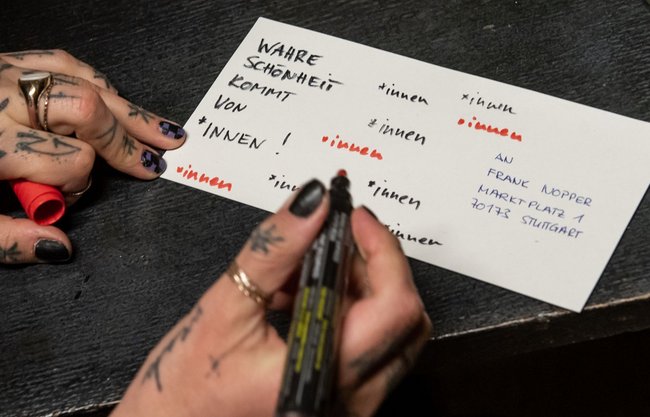 WAHRE
SCHÖNHEIT
KOMMT
VON
*INNEN!
*innen
*innen
*innen
*innen
*innen
*innen
*innen
AN
FRANK NOPPER
MARKTPLATZ 1
70173 STUTTGART